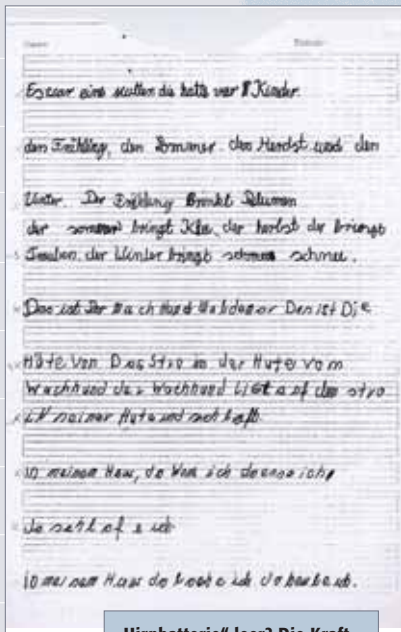 Es war eine Mutter die hatte vier Kinder
den Frühling, den Sommer den Herbst und den
Winter. Der Frühling Brinkt Blumen
der sommer bringt Kle, der herbst der bringt
Trauben, der Winter bringt schnee.
Das ist Der wachHund Der ist Die
Hüte Von Das Stro in der Hute vom
Wachhund der Wachhund Ligt auf dem stro
in seiner Hute und
in meinem Haus, do Von ich do ich,
do ich
in meinem Haus do ich do ich.
Hirnbatterie“ leer? Die Kraft